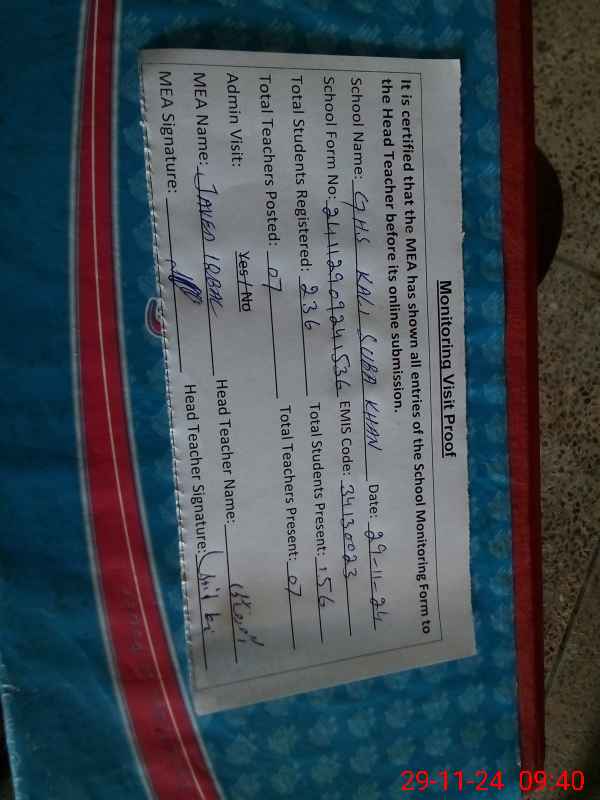 Monitoring Visit Proof
It is certified that the MEA has shown all entries of the School Monitoring Form to
the Head Teacher before its online submission.
School Name: GHS KALI SUBA KHAN Date: 29-11-24
School Form No: 24112909241536 EMIS Code: 34130023
Total Students Registered: 236 Total Students Present: 156
Total Teachers Posted: 07 Total Teachers Present: 07
Admin Visit: Yes / No
MEA Name: JAVED IQBAL Head Teacher Name:
MEA Signature: Head Teacher Signature:
29-11-24 09:40